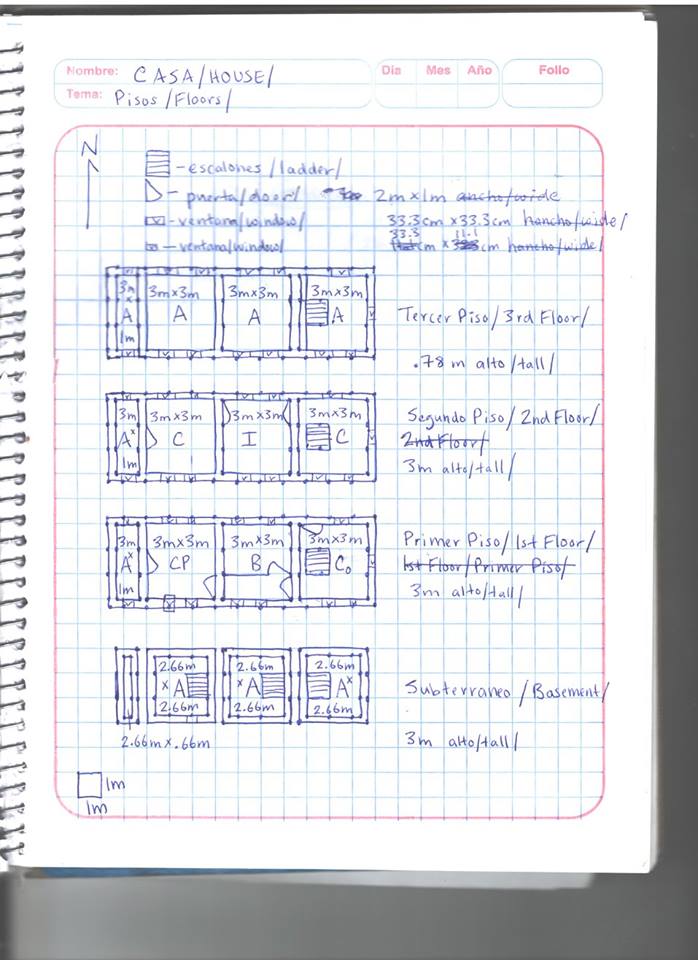 Nombre: CASA/HOUSE/
Tema: Pisos/Floors/
Dia Mes Año Folio
N
-escalones/ladder/
- puerta/door/ 2m x 1m ancho/wide
-ventana/window/ 33.3cm x 33.3cm hancho/wide/
-ventana/window/ 33.3 cm x 11.1 cm hancho/wide/
3m x 1m A
3m x 3m A
3m x 3m A
3m x 3m A
Tercer Piso/3rd Floor/
.78 m alto/tall/
3m x 1m A
3m x 3m C
3m x 3m I
3m x 3m C
Segundo Piso/2nd Floor/
2nd Floor/
3m alto/tall/
3m x 1m A
3m x 3m CP
3m x 3m B
3m x 3m Co
Primer Piso/1st Floor/
1st Floor/Primer Piso/
3m alto/tall/
2.66m x A 2.66m
2.66m x A 2.66m
2.66m A x 2.66m
Subterraneo/Basement/
2.66m x .66m
3m alto/tall/
1m
1m